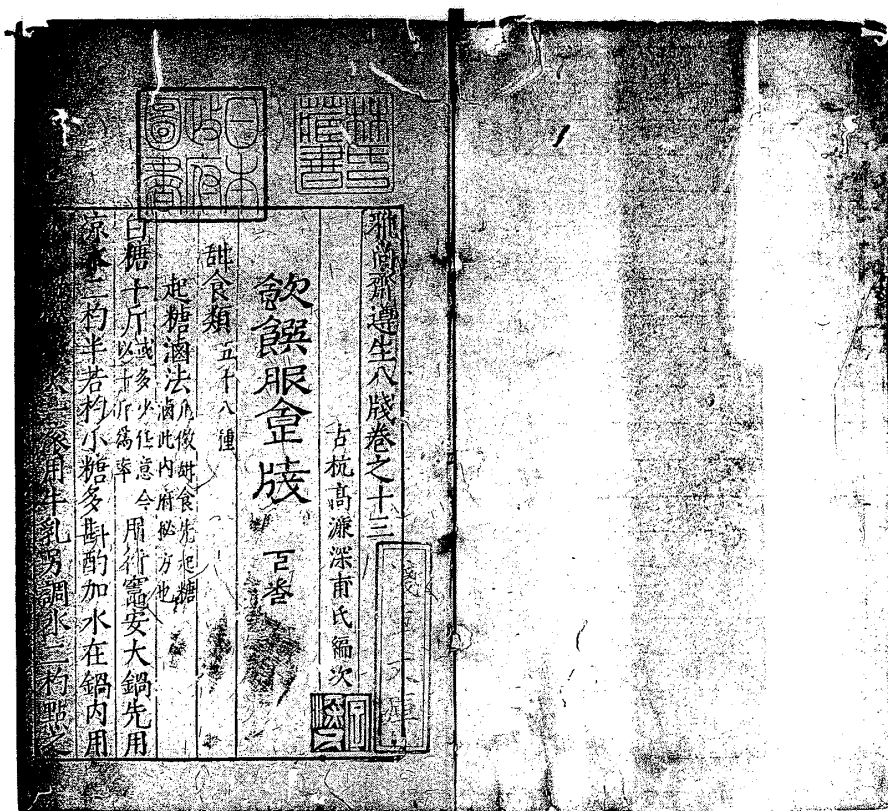 雅尚齋遵生八牋卷之十三
古杭高濂深甫氏編次
飲饌服食牋 下卷
甜食類 五十八種
起糖滷法 凡做甜食先起糖
滷此內府秘方也
白糖十斤 或多少任意今
以十斤為率 用行竈安大鍋先用
凉水二杓半若杓小糖多斟酌加水在鍋內用
用牛乳另調水一杓點之
林氏藏書
日本政府圖書
淺草文庫